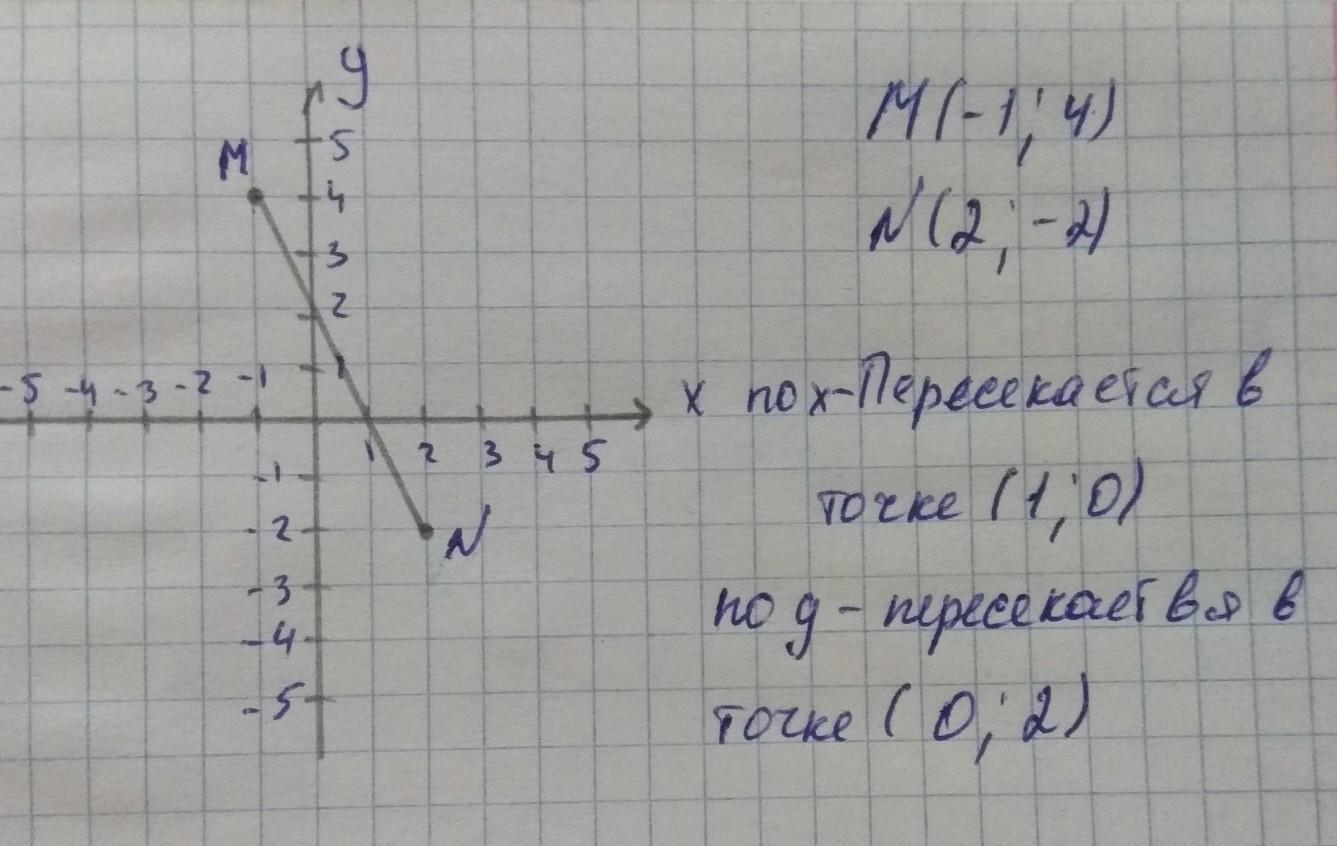 y
5
M
4
3
2
1
-5 -4 -3 -2 -1
x
1 2 3 4 5
-1
-2
N
-3
-4
-5
M(-1; 4)
N(2; -2)
по x-Пересекается в
точке (1; 0)
по y - пересекаетвя в
точке (0; 2)